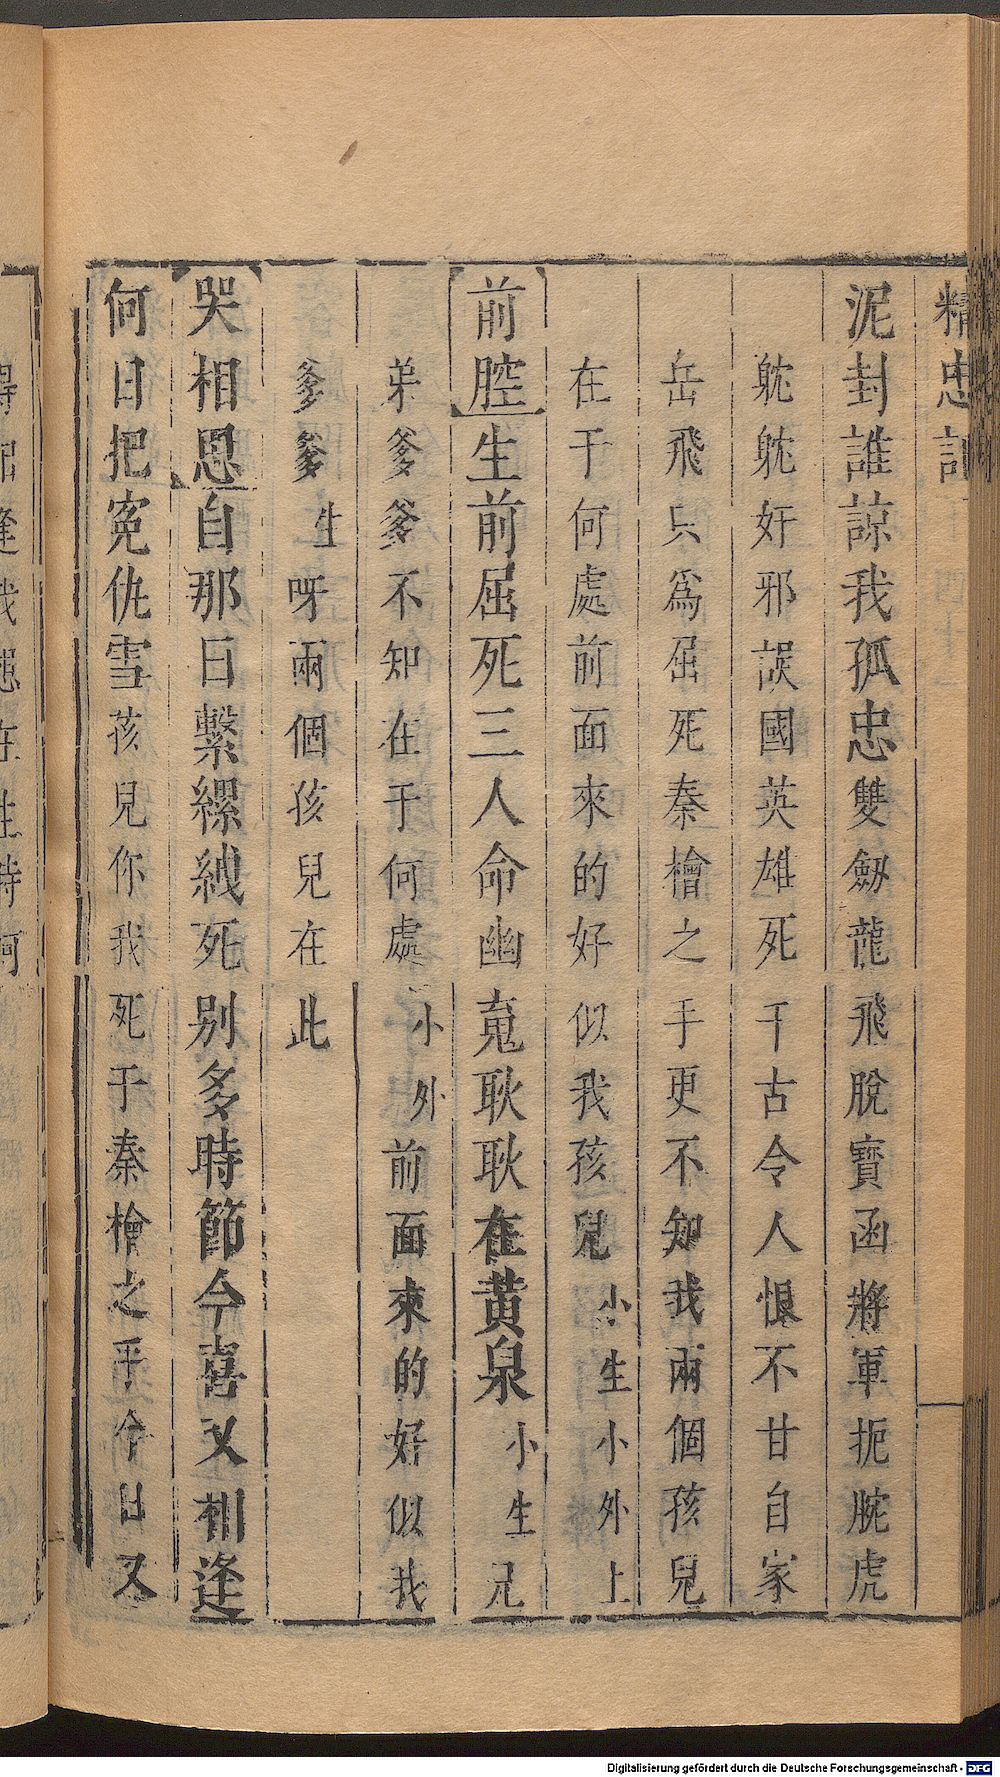 精忠記
泥封誰諒我孤忠雙劔龍飛脫寶函將軍扼腕虎
躭躭奸邪誤國英雄死千古令人恨不甘自家
岳飛只為屈死秦檜之手更不知我兩個孩兒
在于何處前面來的好似我孩兒小生小外上
前腔生前屈死三人命幽䰟耿耿在黃泉小生兄
弟爹爹不知在于何處小外前面來的好似我
爹爹生呀兩個孩兒在此
哭相思自那日繫縲絏死别多時節今喜又相逢
何日把寃仇雪孩兒你我死于秦檜之手今日又
Digitalisierung gefördert durch die Deutsche Forschungsgemeinschaft - DFG